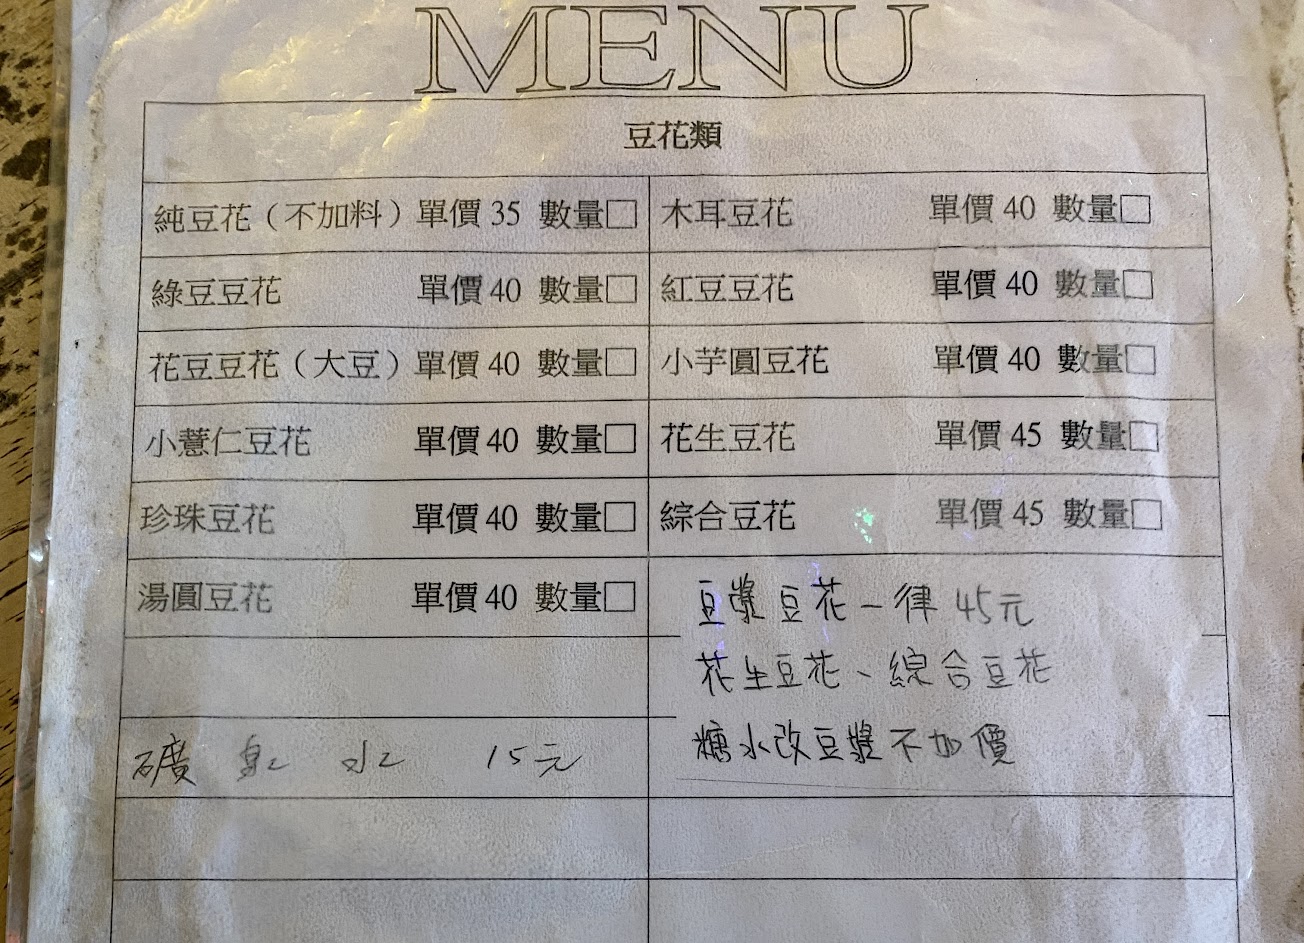 MENU
豆花類
純豆花（不加料）單價 35 數量□
木耳豆花 單價 40 數量□
綠豆豆花 單價 40 數量□
紅豆豆花 單價 40 數量□
花豆豆花（大豆）單價 40 數量□
小芋圓豆花 單價 40 數量□
小薏仁豆花 單價 40 數量□
花生豆花 單價 45 數量□
珍珠豆花 單價 40 數量□
綜合豆花 單價 45 數量□
湯圓豆花 單價 40 數量□
豆漿豆花一律 45元
花生豆花、綜合豆花
糖水改豆漿不加價
礦泉水 15元